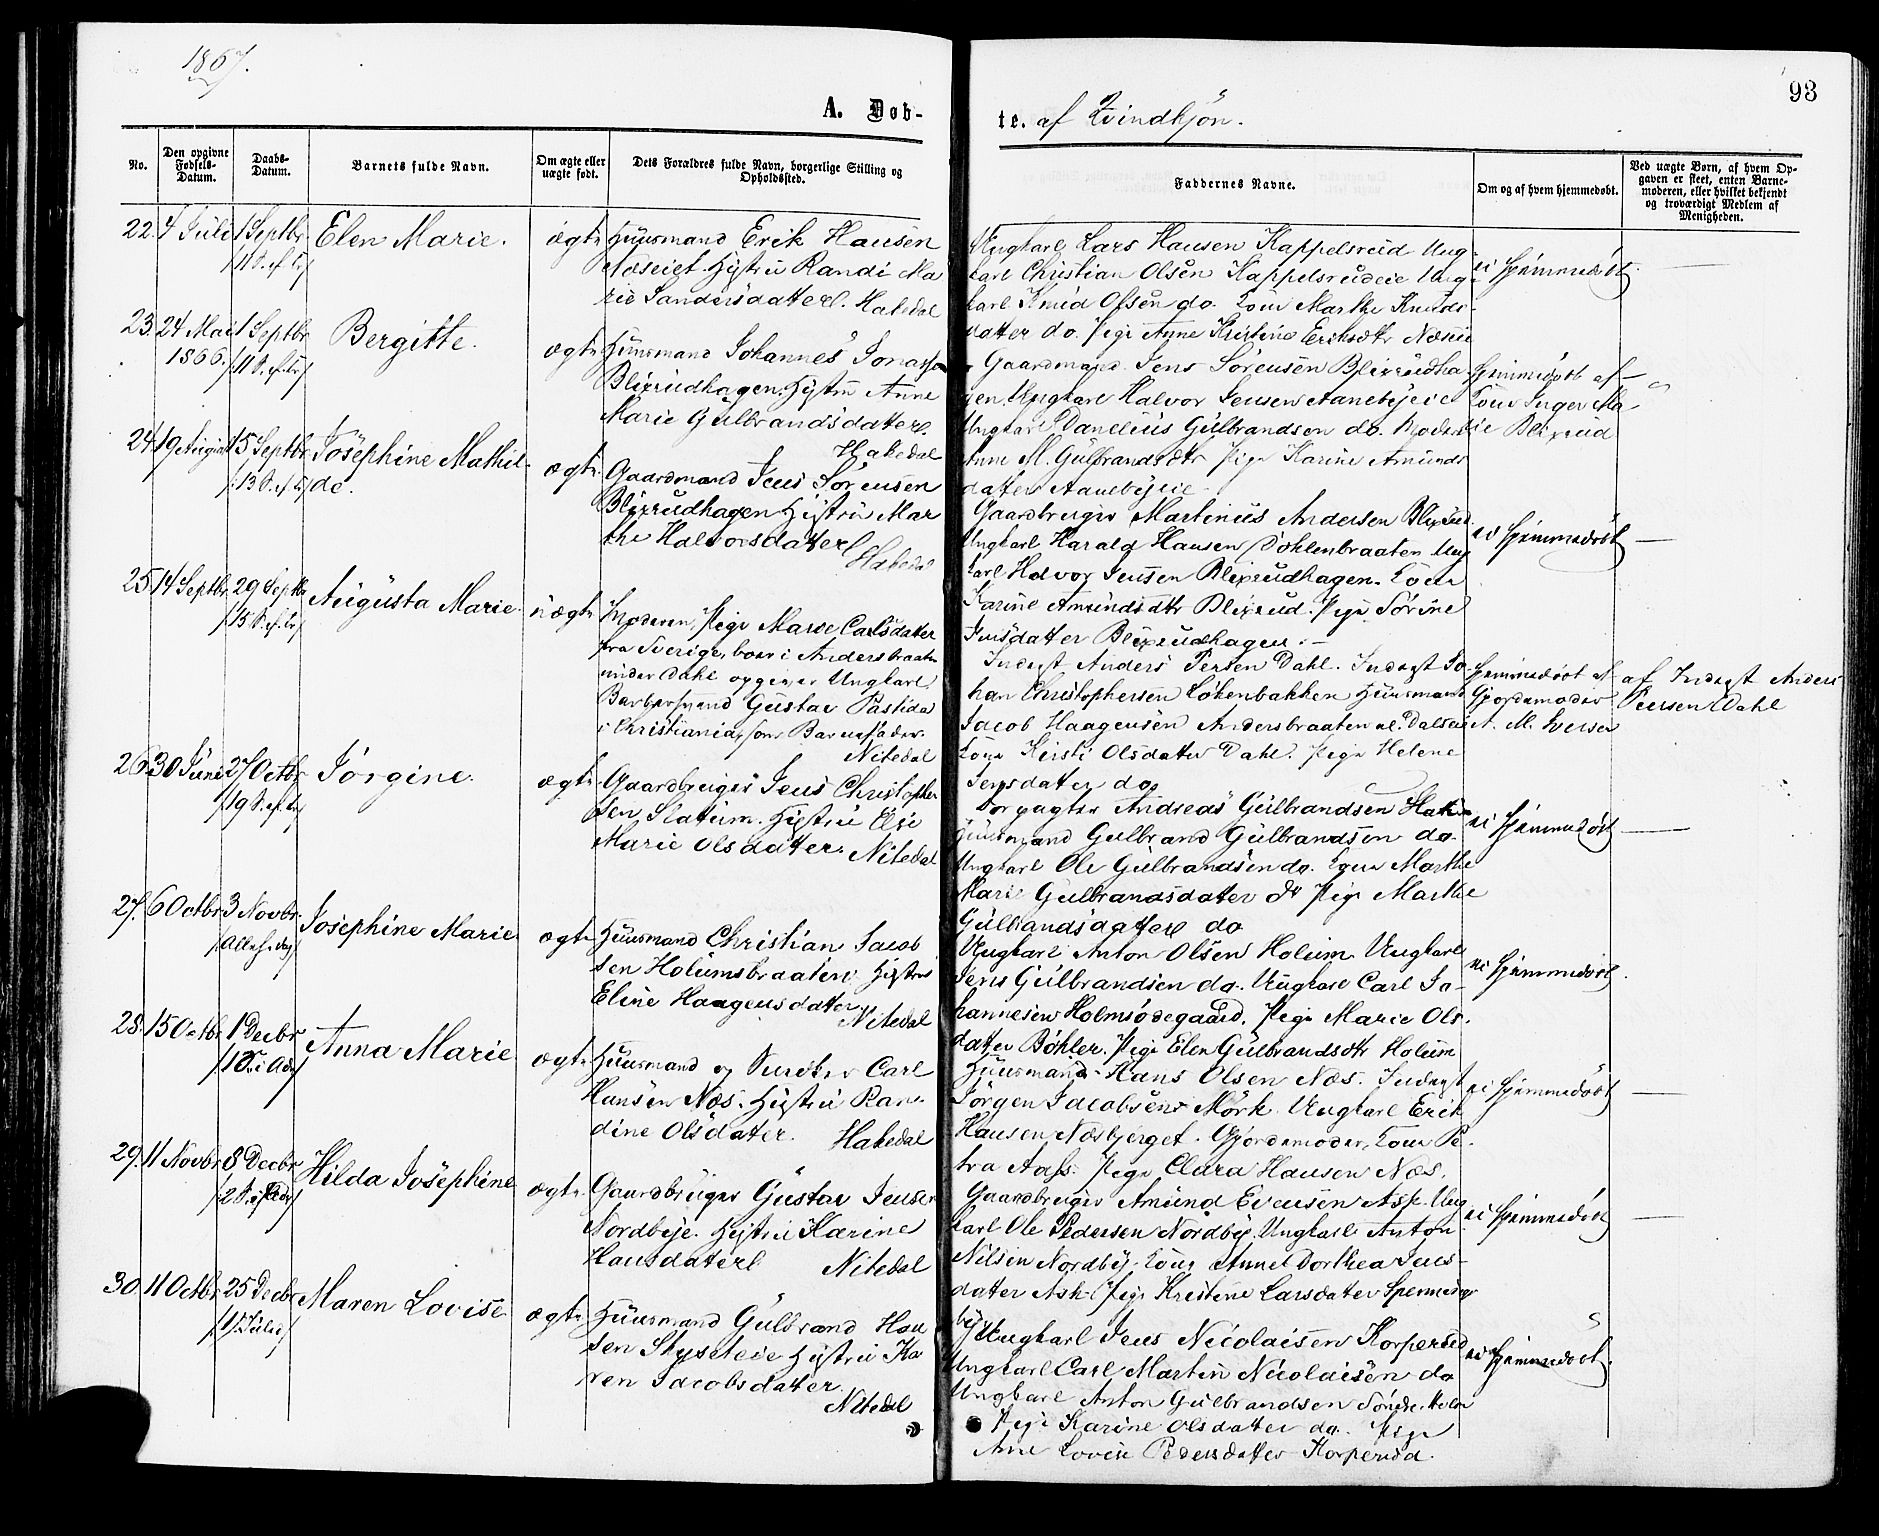 1867.
93
A. Døb-
te. af Qvindkjøn.
No.
Den opgivne Fødsels-Datum.
Daabs-Datum.
Barnets fulde Navn.
Om ægte eller uægte født.
Dets Forældres fulde Navn, borgerlige Stilling og Opholdssted.
Faddernes Navne.
Om og af hvem hjemmedøbt.
Ved uægte Børn, af hvem Op-
gaven er skeet, enten Barne-
moderen, eller hvilket bekjendt
og troværdigt Medlem af
Menigheden.
22. 4 Juli 1 Septbr Elen Marie. ægte
/11 S. ef. Tr/
Huusmand Erik Hansen
Næseiet. Hustru Randi Ma
rie Sandersdatter. Hakedal
Ungkarl Lars Hansen Kappelsrud Ung-
karl Christian Olsen Kappelsrudeie Ung-
karl Knud Olsen do. Kone Marthe Knuds-
datter do. Pige Anne Kristine Eriksdtr Næseie
ei hjemmedøbt.
23. 24 Mai 1 Septbr Bergitte. ægte
1866. /11 S. ef. Tr/
Huusmand Johannes Jonassen
Blixrudhagen. Hustru Anne
Marie Gulbrandsdatter.
Hakedal
Gaardmand Jens Sørensen Blixrudha
gen. Ungkarl Halvor Jensen Aanebyeie
Ungkarl Danelius Gulbrandsen do. Moderen
Anne M. Gulbrandsdtr Pige Karine Amunds
datter Aanebyeie
hjemmedøbt af
Kone Inger Ma
rie Blixrud
24. 19 August 15 Septbr Josephine Mathil- ægte
/13 S. ef. Tr/ de.
Gaardmand Jens Sørensen
Blixrudhagen Hustru Mar
the Halvorsdatter
Hakedal
Gaardbruger Martinus Andersen Blixrud
Ungkarl Harald Hansen Døhlenbraaten Ung
karl Halvor Jensen Blixrudhagen. Kone
Karine Amundsdtr Blixrud. Pige Sørine
Jensdatter Blixrudhagen.
ei hjemmedøbt
25. 14 Septbr. 29 Septbr Augusta Marie. uægte
/15 S. ef. Tr/
Moderen, Pige Marie Carlsdatter
fra Sverige, boer i Andersbraaten
under Dahl opgiver Ungkarl
Barbersvend Gustav Pastida
i Christiania, som Barnefader.
Nitedal
Inderst Anders Persen Dahl. Inderst Jo
han Christophersen Løkenbakken Huusmand
Jacob Haagensen Andersbraaten
Kone Kersti Olsdatter Dahl. Pige Helene
Jensdatter do.
hjemmedøbt af
Gjordemoder
A. M. Iversen
af Inderst Anders
Persen Dahl
26. 30 Juni 27 Octbr. Jørgine. ægte
/19 S. ef. Tr/
Gaardbruger Jens Christopher
sen Slatum. Hustru Else
Marie Olsdatter. Nitedal
Forpagter Andreas Gulbrandsen
Huusmand Gulbrand Gulbrandsen do.
Ungkarl Ole Gulbrandsen do. Kone Marthe
Marie Gulbrandsdatter do Pige Marthe
Gulbrandsdatter do
ei hjemmedøbt
27. 6 Octbr. 3 Novbr. Josephine Marie ægte
/Alleh. dag/
Huusmand Christian Jacob
sen Holumsbraaten. Hustru
Eline Haagensdatter
Nitedal
Ungkarl Anton Olsen Holum. Ungkarl
Jens Gulbrandsen do. Ungkarl Carl Jo-
hannesen Holmsødegaard. Pige Marie Ols-
datter Bøhler. Pige Elen Gulbrandsdtr Holum
ei hjemmedøbt.
28. 15 Octbr. 1 Decbr Anna Marie ægte
/1 S. i Adv/
Huusmand og Snedker Carl
Hansen Næs. Hustru Ran-
dine Olsdatter. Hakedal
Huusmand Hans Olsen Næs. Inderst
Jørgen Jacobsen Mørk. Ungkarl Erik
Hansen Næsbjerget. Gjordemoder, Kone Pe-
tra Aass. Pige Clara Hansen Næs.
ei hjemmedøbt
29. 11 Novbr. 8 Decbr Hilda Josephine ægte.
/2 S. i Adv/
Gaardbruger Gustav Jensen
Nordbye. Hustru Karine
Hansdatter Nitedal
Gaardbruger Amund Evensen Ask. Ung
karl Ole Pedersen Nordby. Ungkarl Anton
Nilsen Nordby. Kone Anne Dorthea Jens-
datter Ask. Pige Kristine Larsdatter Spenning
by
ei hjemmedøbt
30. 11 Octbr. 25 Decbr. Maren Lovise ægte.
/1 Juled/
Huusmand Gulbrand Han
sen Skyseteie Hustru Ka
ren Jacobsdatter.
Nitedal
Ungkarl Jens Nicolaisen Korperud
Ungkarl Carl Martin Nicolaisen do
Ungkarl Anton Gulbrandsen Søndre Holm
Pige Karine Olsdatter do. Pige
Ane Lovise Pedersdatter Korperud.
ei hjemmedøbt.